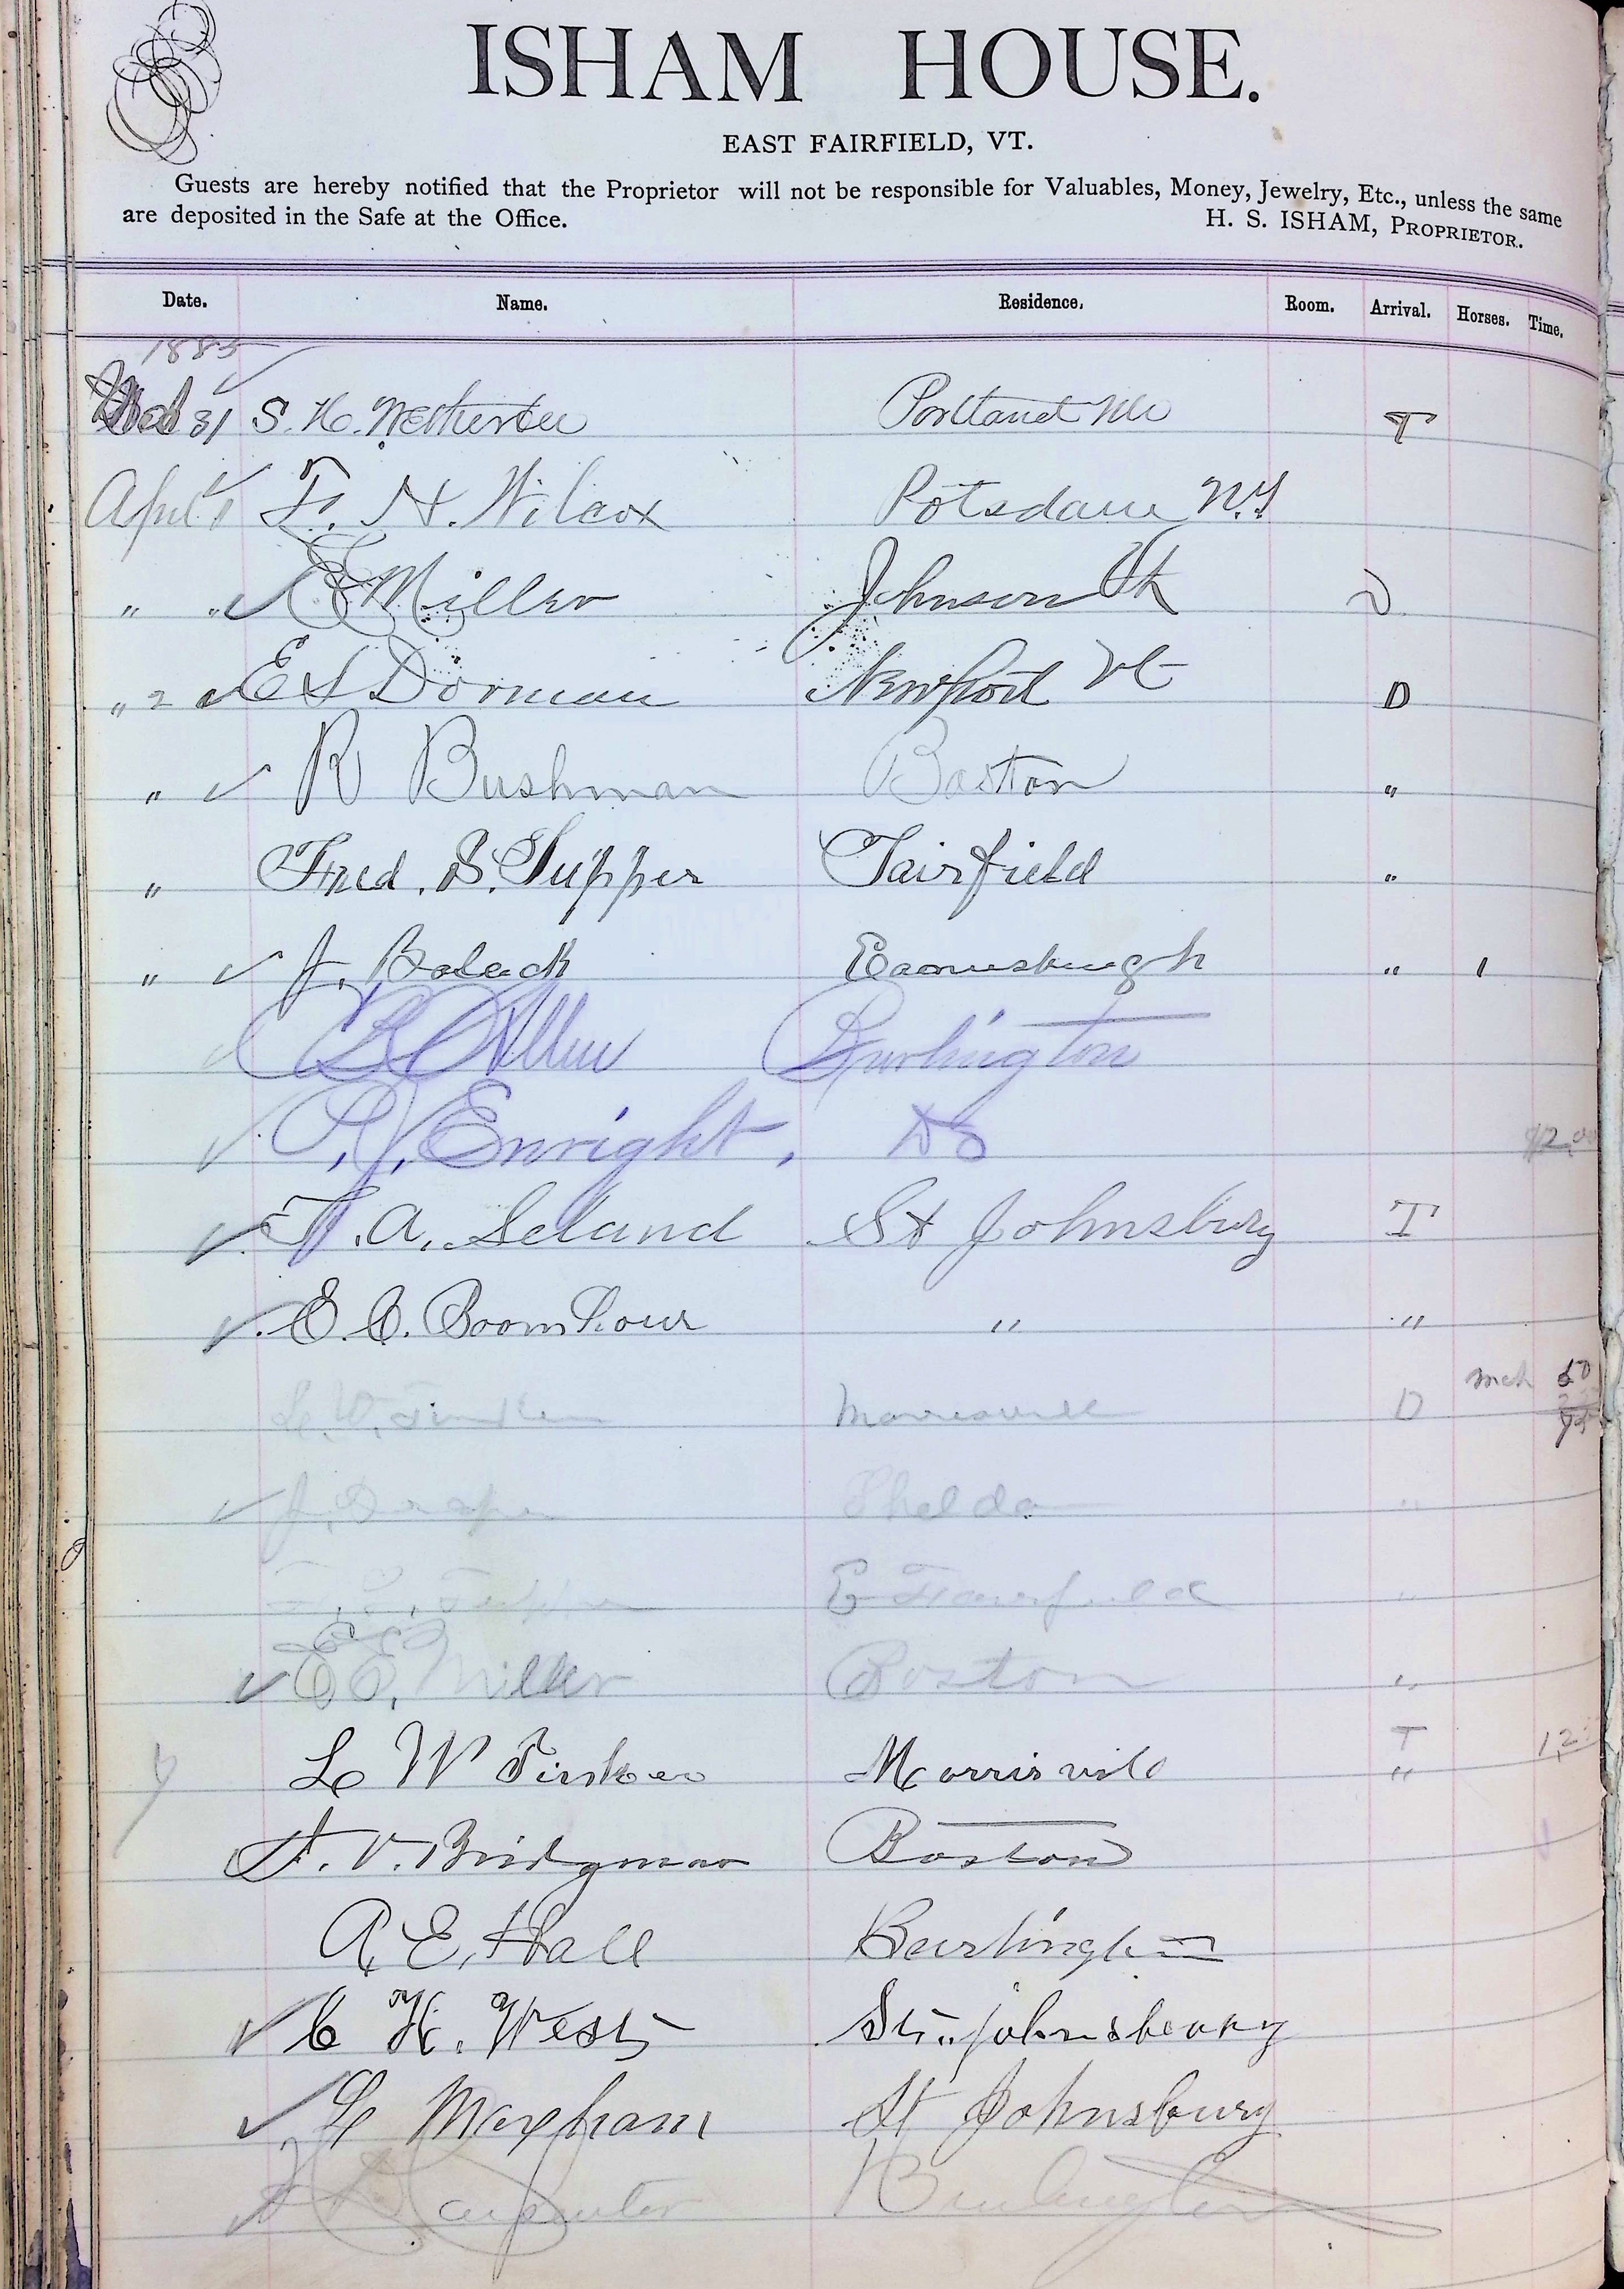 ISHAM HOUSE.
EAST FAIRFIELD, VT.
Guests are hereby notified that the Proprietor will not be responsible for Valuables, Money, Jewelry, Etc., unless the same
are deposited in the Safe at the Office. H. S. ISHAM, PROPRIETOR.
Date. Name. Residence. Room. Arrival. Horses. Time.
1885
31 S. H. Portland Me T
April 1 F. H. Wilcox Potsdam N.Y
" " Miller Johnson Vt D
" 2 E S Dorman Newport Vt D
" R Bushman Boston "
" Fred. S. Tupper Fairfield "
" J. "
Allen Burlington
P. J. Enright, Do
A. Leland St Johnsbury T
E. C. Boomhour " "
L. W. Tinker Morrisville D 50
J. Draper Sheldon "
Tupper E Fairfield "
E E, Miller Boston "
T
L W Tinker Morrisvile "
F. V. Bridgman Boston
A, E, Hall Burlington
C H. West St. Johnsbury
L Maxham St Johnsbury
Carpenter Burlington